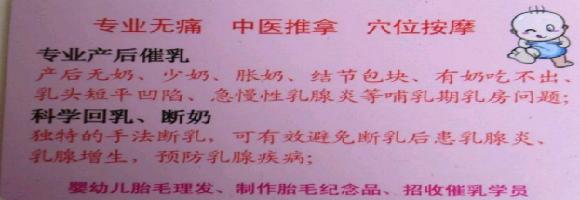 专业无痛 中医推拿 穴位按摩
专业产后催乳
产后无奶、少奶、胀奶、结节包块、有奶吃不出、
乳头短平凹陷、急慢性乳腺炎等哺乳期乳房问题;
科学回乳、断奶
独特的手法断乳，可有效避免断乳后患乳腺炎、
乳腺增生，预防乳腺疾病;
婴幼儿胎毛理发、制作胎毛纪念品、招收催乳学员